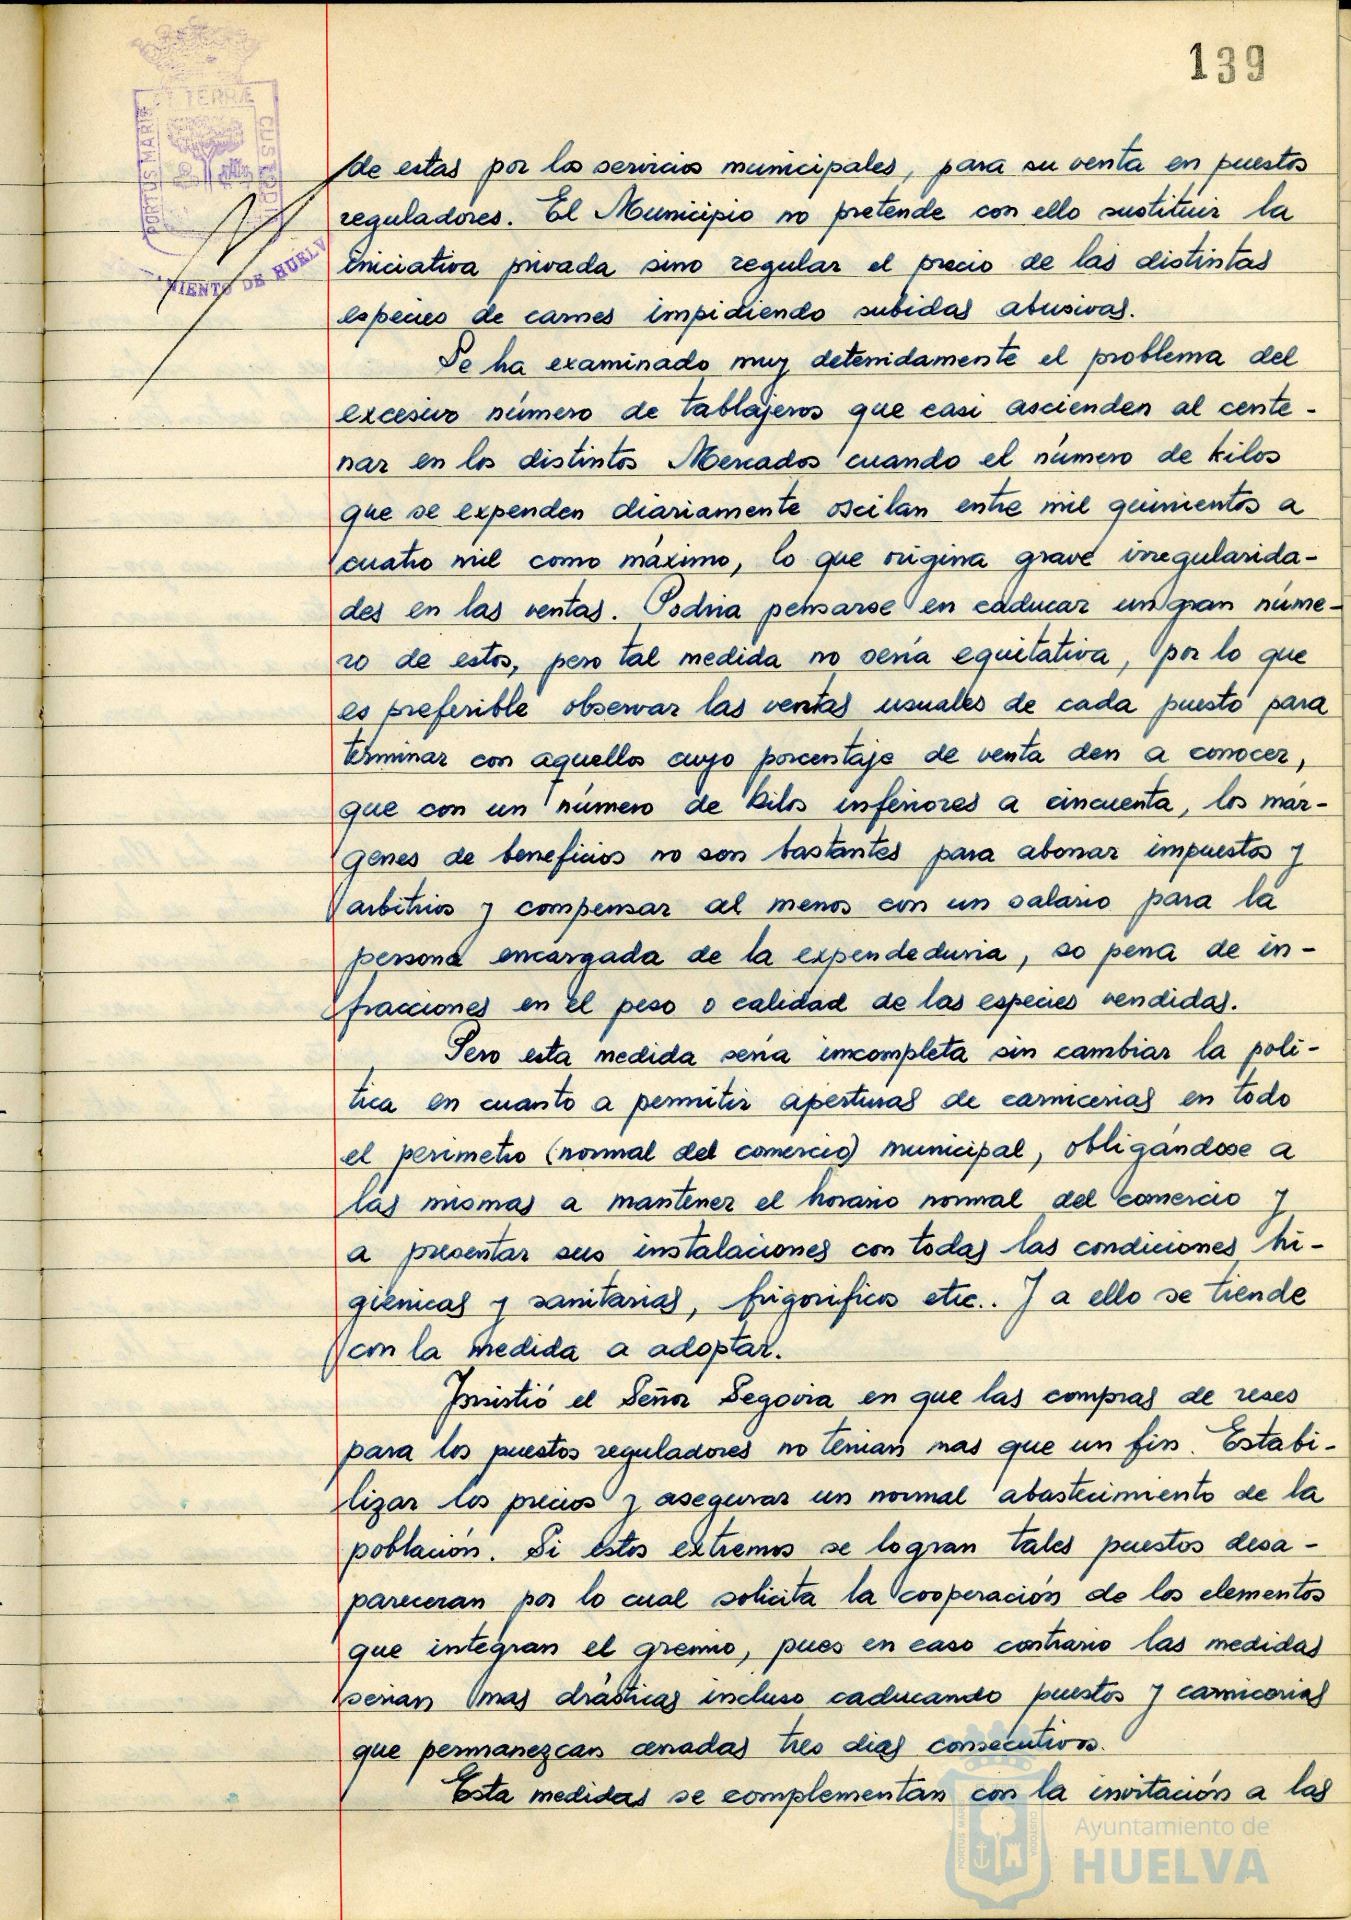 139
PORTUS MARIS ET TERRÆ CUSTODIA
MIENTO DE HUELV
de estas por los servicios municipales, para su venta en puestos
reguladores. El Municipio no pretende con ello sustituir la
iniciativa privada sino regular el precio de las distintas
especies de carnes impidiendo subidas abusivas.
Se ha examinado muy detenidamente el problema del
excesivo número de tablajeros que casi ascienden al cente-
nar en los distintos Mercados cuando el número de kilos
que se expenden diariamente oscilan entre mil quinientos a
cuatro mil como máximo, lo que origina grave irregularida-
des en las ventas. Podria pensarse en caducar un gran núme-
ro de estos, pero tal medida no sería equitativa, por lo que
es preferible observar las ventas usuales de cada puesto para
terminar con aquellos cuyo porcentaje de venta den a conocer,
que con un número de kilos inferiores a cincuenta, los már-
genes de beneficios no son bastantes para abonar impuestos y
arbitrios y compensar al menos con un salario para la
persona encargada de la expendeduria, so pena de in-
fracciones en el peso o calidad de las especies vendidas.
Pero esta medida sería imcompleta sin cambiar la polí-
tica en cuanto a permitir aperturas de carnicerias en todo
el perimetro (normal del comercio) municipal, obligándose a
las mismas a mantener el horario normal del comercio y
a presentar sus instalaciones con todas las condiciones hi-
gienicas y sanitarias, frigorificos etc.. Y a ello se tiende
con la medida a adoptar.
Insistió el Señor Segovia en que las compras de reses
para los puestos reguladores no tenian mas que un fin. Estabi-
lizar los precios y asegurar un normal abastecimiento de la
población. Si estos extremos se logran tales puestos desa-
pareceran por lo cual solicita la cooperación de los elementos
que integran el gremio, pues en caso contrario las medidas
serian mas drásticas incluso caducando puestos y carnicerias
que permanezcan cerradas tres dias consecutivos.
Esta medidas se complementan con la invitación a las
PORTUS MARIS CUSTODIA
Ayuntamiento de
HUELVA